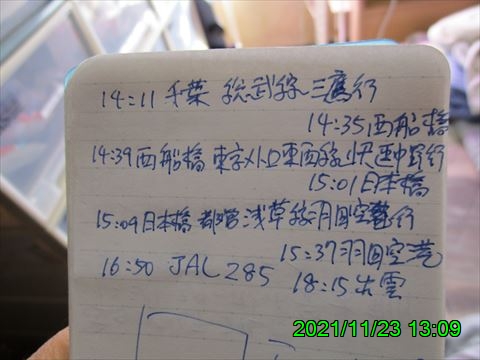 14:11 千葉 総武線 三鷹行
14:35 西船橋
14:39 西船橋 東京メトロ東西線 快速中野行
15:01 日本橋
15:09 日本橋 都営浅草線 羽田空港行
15:37 羽田空港
16:50 JAL 285
18:15 出雲
2021/11/23 13:09